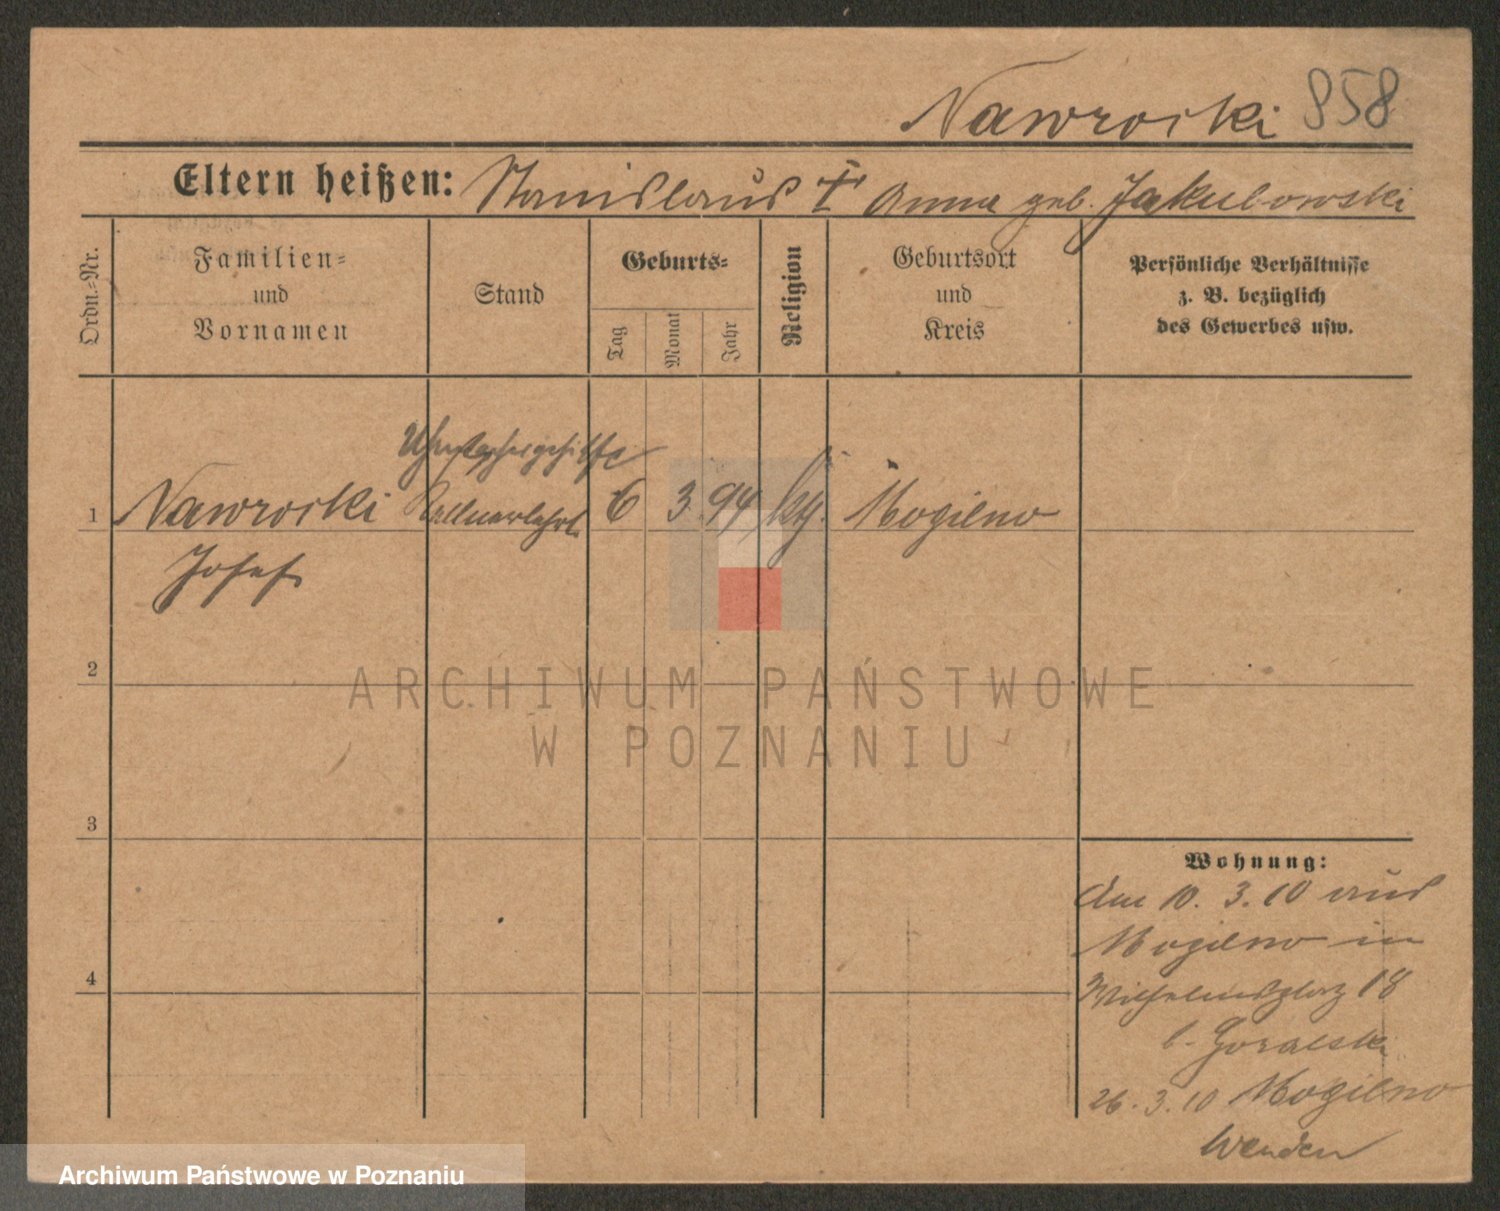 Nawrocki 858
Eltern heißen: Stanislaus † Anna geb. Jakubowski
Ordn.-Nr.
Familien-
und
Vornamen
Stand
Geburts-
Tag
Monat
Jahr
Religion
Geburtsort
und
Kreis
Persönliche Verhältnisse
z. B. bezüglich
des Gewerbes usw.
1 Nawrocki Kellnerlehrl. 6 3. 94 kth. Mogilno
Josef
2
3
4
Wohnung:
Am 10. 3. 10 aus
Mogilno in
Wilhelmsplatz 18
b. Goralski
26. 3. 10 Mogilno
Wenden
ARCHIWUM PAŃSTWOWE
W POZNANIU
Archiwum Państwowe w Poznaniu